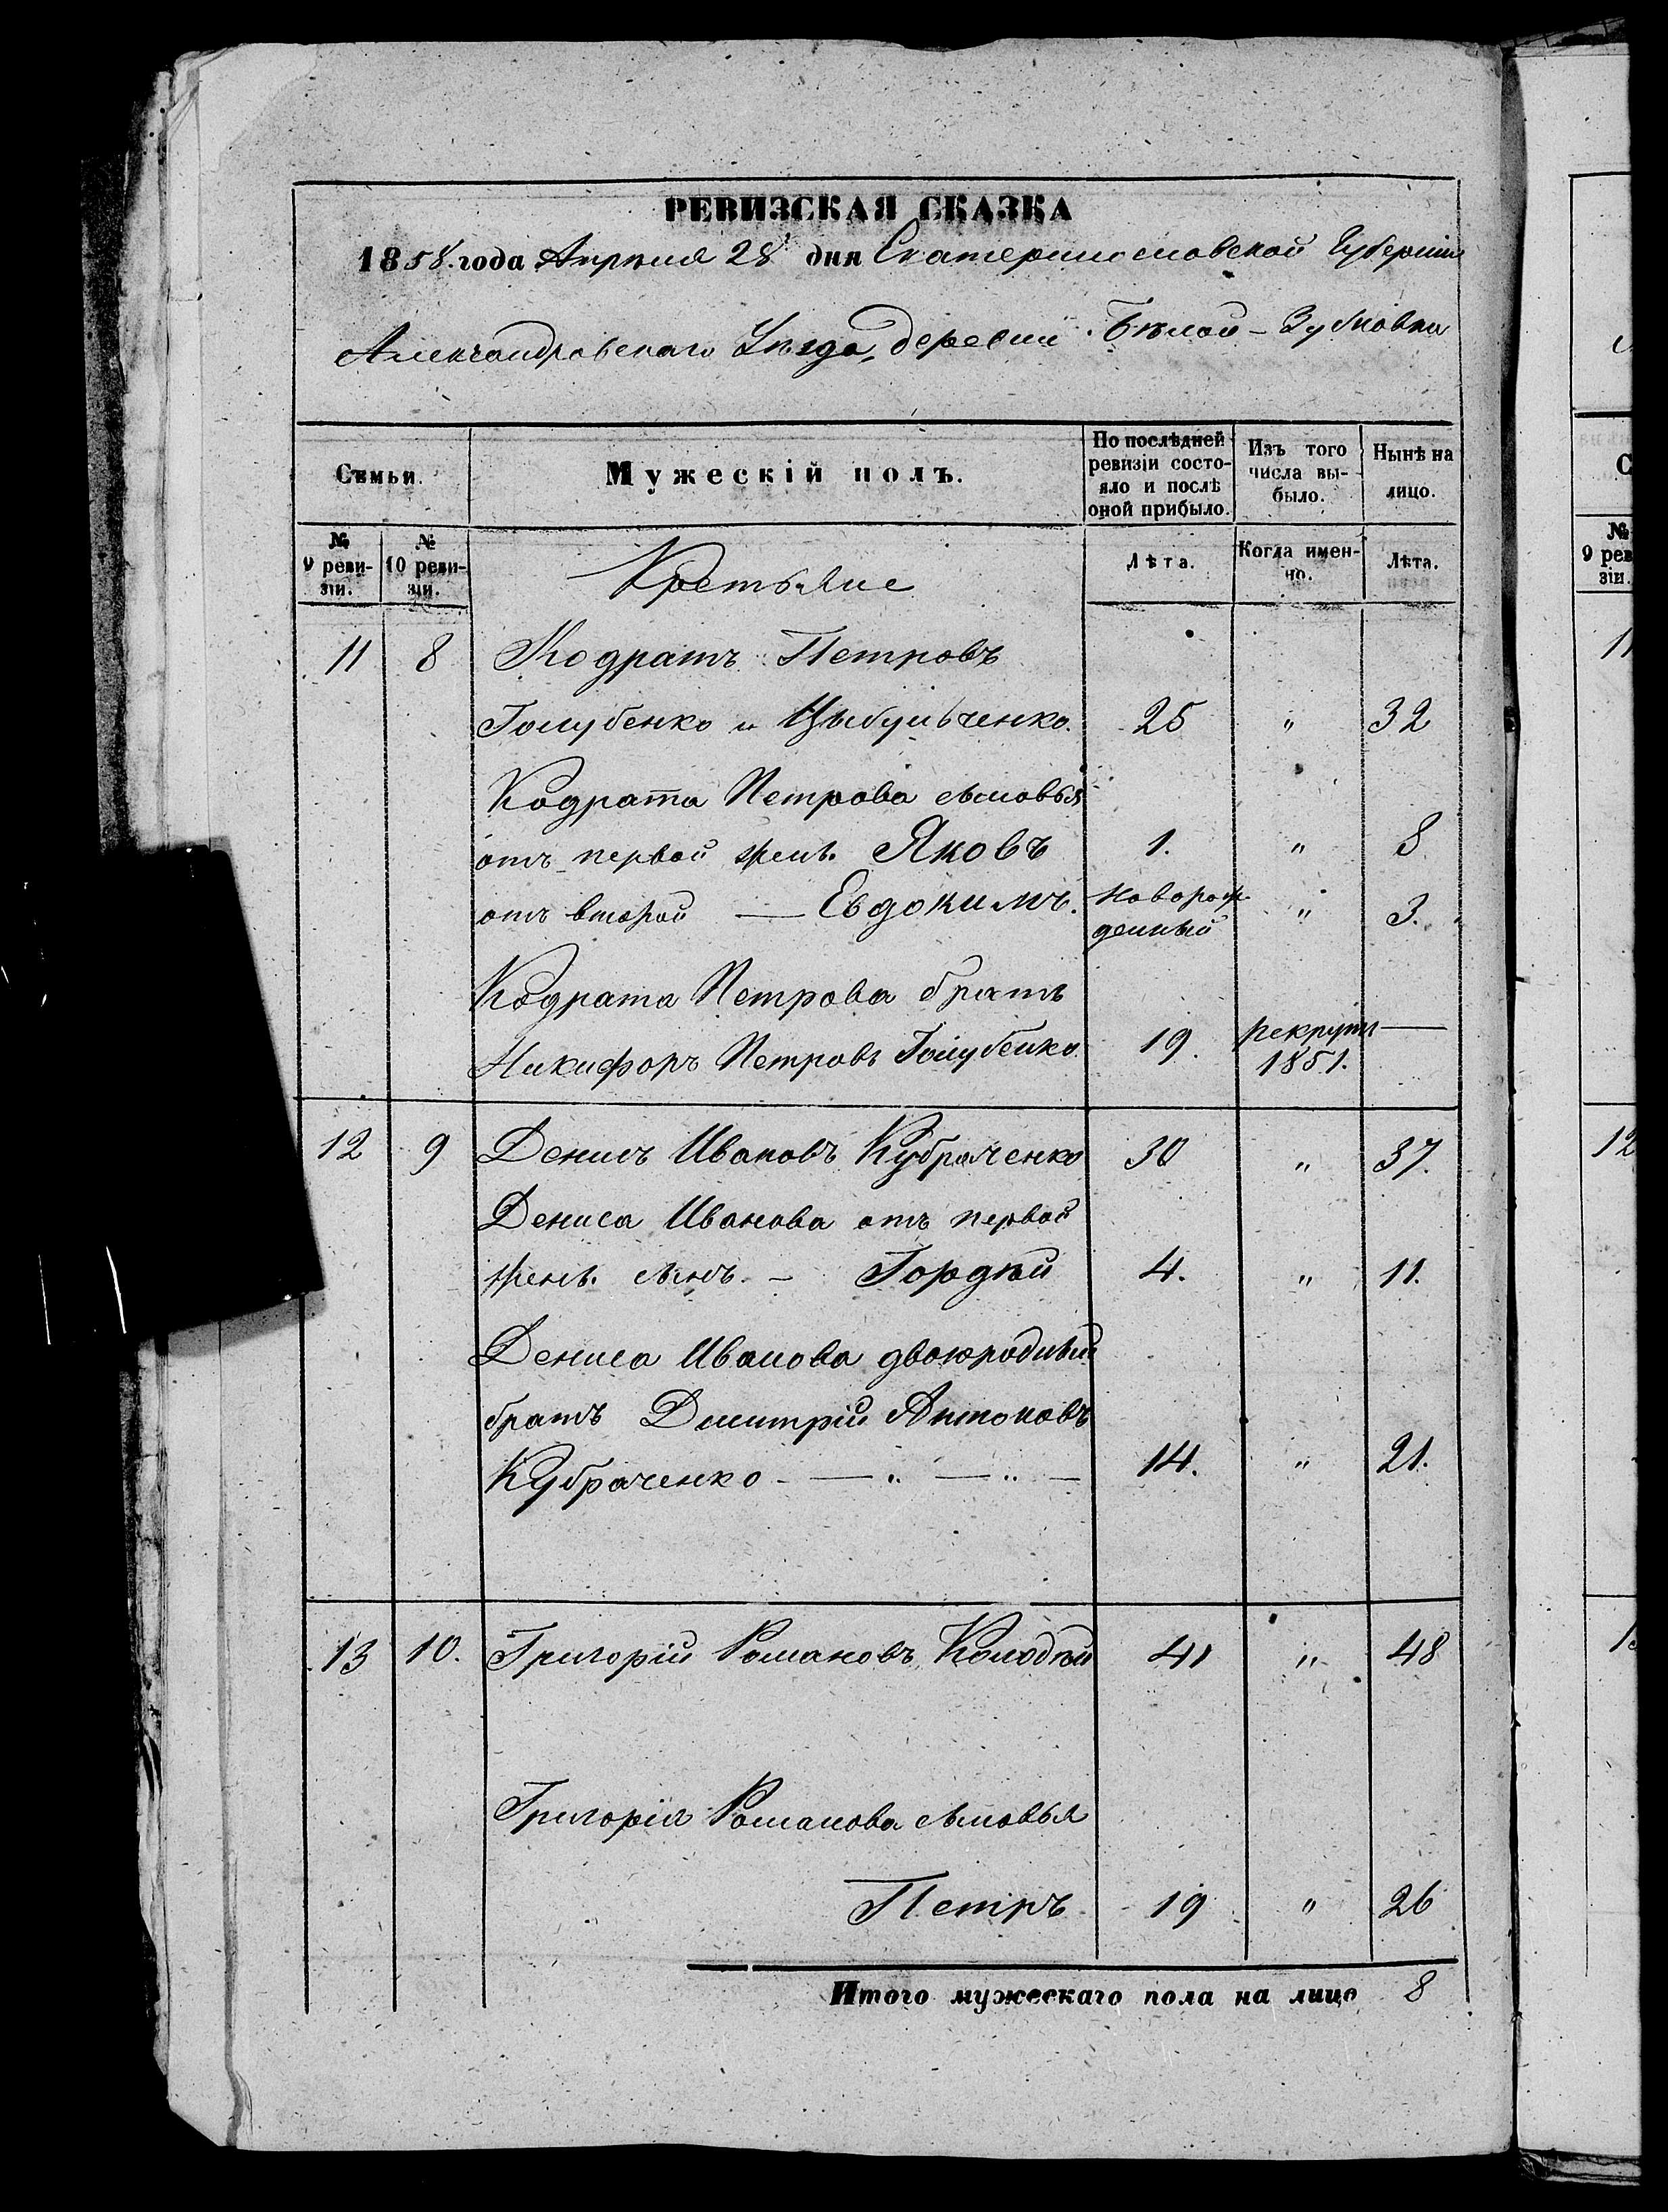 РЕВИЗСКАЯ СКАЗКА
1858. года Апрѣля 28 дня Екатеринославской Губерніи
Александровскаго Уѣзда, деревни Бѣлой-Зубковки
Семьи.
Мужескій полъ.
По послѣдней ревизіи состояло и послѣ оной прибыло.
Изъ того числа выбыло.
Нынѣ на лицо.
№ 9 ревизіи.
№ 10 ревизіи.
Крестьяне
Лѣта.
Когда именно.
Лѣта.
11 8 Кодратъ Петровъ
Голубенко и Цыбульченко. 25 " 32
Кодрата Петрова сыновья
отъ первой жены. Яковъ 1. " 8
отъ второй — Евдокимъ. новорож-
денный " 3.
Кодрата Петрова братъ
Никифоръ Петровъ Голубенко 19. рекрутъ —
1851.
12 9 Денисъ Ивановъ Кубраченко 30 " 37.
Дениса Иванова отъ первой
жены. сынъ. — Гордѣй 4. " 11.
Дениса Иванова двоюродный
братъ Дмитрій Антоновъ
Кубраченко - — " — " — 14. " 21.
13 10. Григорій Романовъ Колодѣй 41 " 48
Григорія Романова сыновья
Петръ 19 " 26
Итого мужескаго пола на лицо 8
№
9 рев
зіи.
12